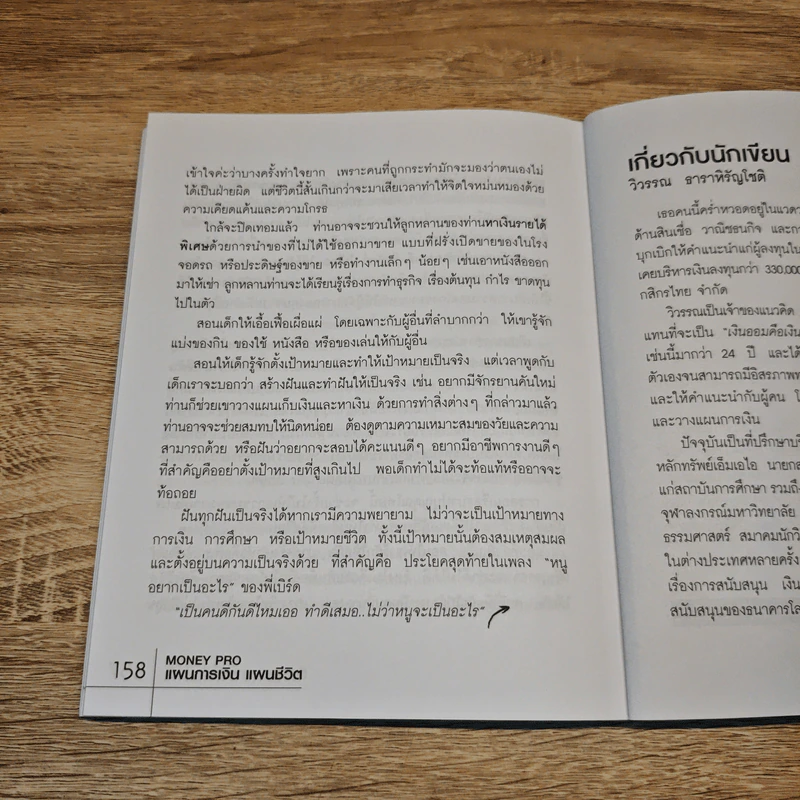 เข้าใจค่ะว่าบางครั้งทำใจยาก เพราะคนที่ถูกกระทำมักจะมองว่าตนเองไม่
ได้เป็นฝ่ายผิด แต่ชีวิตนี้สั้นเกินกว่าจะมาเสียเวลาทำให้จิตใจหม่นหมองด้วย
ความเคียดแค้นและความโกรธ
ใกล้จะปิดเทอมแล้ว ท่านอาจจะชวนให้ลูกหลานของท่านหาเงินรายได้
พิเศษด้วยการนำของที่ไม่ได้ใช้ออกมาขาย แบบที่ฝรั่งเปิดขายของในโรง
จอดรถ หรือประดิษฐ์ของขาย หรือทำงานเล็กๆ น้อยๆ เช่นเอาหนังสือออก
มาให้เช่า ลูกหลานท่านจะได้เรียนรู้เรื่องการทำธุรกิจ เรื่องต้นทุน กำไร ขาดทุน
ไปในตัว
สอนเด็กให้เอื้อเฟื้อเผื่อแผ่ โดยเฉพาะกับผู้อื่นที่ลำบากกว่า ให้เขารู้จัก
แบ่งของกิน ของใช้ หนังสือ หรือของเล่นให้กับผู้อื่น
สอนให้เด็กรู้จักตั้งเป้าหมายและทำให้เป้าหมายเป็นจริง แต่เวลาพูดกับ
เด็กเราจะบอกว่า สร้างฝันและทำฝันให้เป็นจริง เช่น อยากมีจักรยานคันใหม่
ท่านก็ช่วยเขาวางแผนเก็บเงินและหาเงิน ด้วยการทำสิ่งต่างๆ ที่กล่าวมาแล้ว
ท่านอาจจะช่วยสมทบให้นิดหน่อย ต้องดูตามความเหมาะสมของวัยและความ
สามารถด้วย หรือฝันว่าอยากจะสอบได้คะแนนดีๆ อยากมีอาชีพการงานดีๆ
ที่สำคัญคืออย่าตั้งเป้าหมายที่สูงเกินไป พอเด็กทำไม่ได้จะท้อแท้หรืออาจจะ
ท้อถอย
ฝันทุกฝันเป็นจริงได้หากเรามีความพยายาม ไม่ว่าจะเป็นเป้าหมายทาง
การเงิน การศึกษา หรือเป้าหมายชีวิต ทั้งนี้เป้าหมายนั้นต้องสมเหตุสมผล
และตั้งอยู่บนความเป็นจริงด้วย ที่สำคัญคือ ประโยคสุดท้ายในเพลง "หนู
อยากเป็นอะไร" ของพี่เบิร์ด
"เป็นคนดีกันดีไหมเออ ทำดีเสมอ..ไม่ว่าหนูจะเป็นอะไร"
158
MONEY PRO
แผนการเงิน แผนชีวิต
เกี่ยวกับนักเขียน
วิวรรณ ธาราหิรัญโชติ
เธอคนนี้คร่ำหวอดอยู่ในแวดว
ด้านสินเชื่อ วาณิชธนกิจ และก
บุกเบิกให้คำแนะนำแก่ผู้ลงทุนใน
เคยบริหารเงินลงทุนกว่า 330,000
กสิกรไทย จำกัด
วิวรรณเป็นเจ้าของแนวคิด
แทนที่จะเป็น "เงินออมคือเงิน
เช่นนี้มากว่า 24 ปี และได้
ตัวเองจนสามารถมีอิสรภาพท
และให้คำแนะนำกับผู้คน โ
และวางแผนการเงิน
ปัจจุบันเป็นที่ปรึกษาบริ
หลักทรัพย์เอ็มเอไอ นายกส
แก่สถาบันการศึกษา รวมถึง
จุฬาลงกรณ์มหาวิทยาลัย
ธรรมศาสตร์ สมาคมนักวิ
ในต่างประเทศหลายครั้ง
เรื่องการสนับสนุน เงิน
สนับสนุนของธนาคารโล